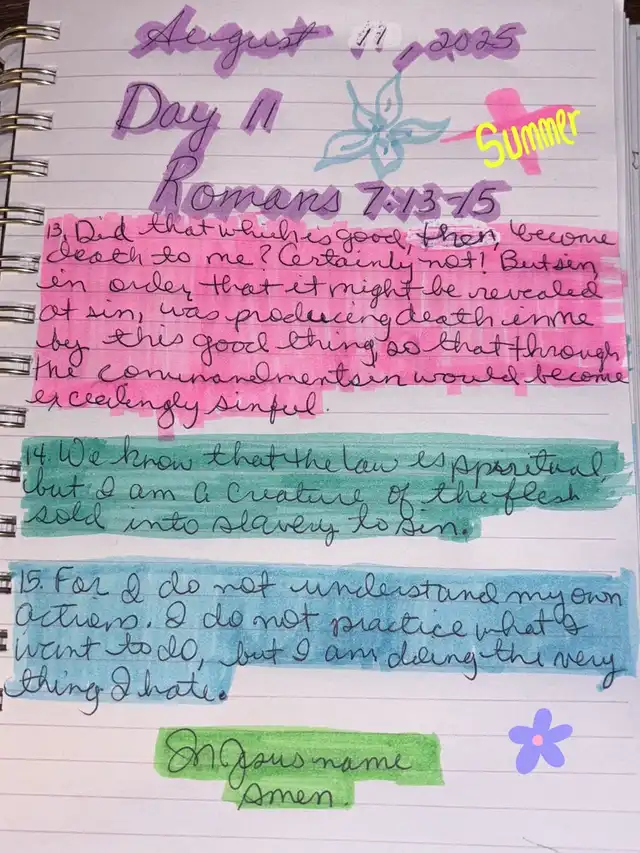 August 11, 2025
Day 11
Summer
Romans 7:13-15
13. Did that which is good, then, become
death to me? Certainly not! But sin
in order that it might be revealed
at sin, was producing death in me
by this good thing, so that through
the commandment sin would become
exceedingly sinful.
14. We know that the law is spiritual,
but I am a creature of the flesh
sold into slavery to sin.
15. For I do not understand my own
actions. I do not practice what I
want to do, but I am doing the very
thing I hate.
In Jesus name
Amen.